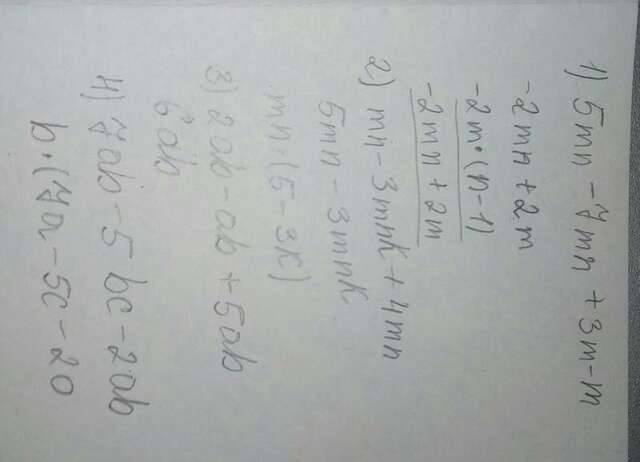 1) 5mn - 7mn + 3m - m
-2mn + 2m
-2m·(n-1)
-2mn + 2m
2) mn - 3mnk + 4mn
5mn - 3mnk
mn(5 - 3k)
3) 2ab - ab + 5ab
6ab
4) 7ab - 5bc - 2ab
b·(7a - 5c - 20